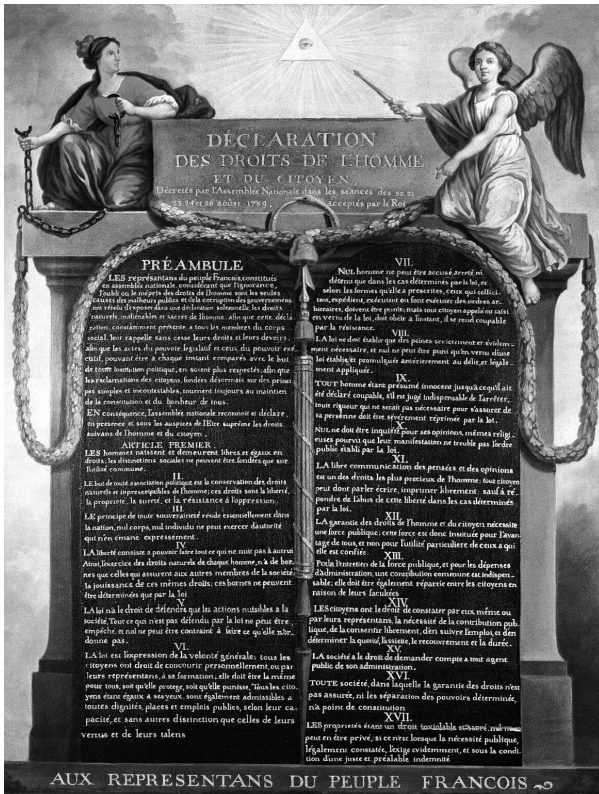 DÉCLARATION
DES DROITS DE L'HOMME
ET DU CITOYEN,
Décretés par l'Assemblée Nationale dans les séances des 20. 21
23. 24 et 26 aoust 1789, acceptés par le Roi
PRÉAMBULE
LES représentans du peuple Francois, constitués
en assemblée nationale, considérant que l'ignorance,
l'oubli ou le mépris des droits de l'homme sont les seules
causes des malheurs publics et de la corruption des gouvernemens
ont résolu d'exposer dans une déclaration solemnelle, les droits
naturels, inaliénables et sacrés de l'homme; afin que cette décla
ration, constamment présente a tous les membres du corps
social, leur rappelle sans cesse leurs droits et leurs devoirs;
afin que les actes du pouvoir legislatif et ceux du pouvoir exé
cutif, pouvant être a chaque instant comparés avec le but
de toute institution politique, en soient plus respectés; afin que
les reclamations des citoyens, fondées désormais sur des princi
pes simples et incontestables, tournent toujours au maintien
de la constitution et du bonheur de tous.
EN conséquence, l'assemblée nationale reconnoit et déclare,
en presence et sous les auspices de l'Etre suprême les droits
suivans de l'homme et du citoyen.
ARTICLE PREMIER.
LES hommes naissent et demeurent libres et égaux en
droits; les distinctions sociales ne peuvent être fondées que sur
l'utilité commune.
II.
LE but de toute association politique est la conservation des droits
naturels et inprescriptibles de l'homme; ces droits sont la liberté,
la propriete, la sureté, et la résistance à l'oppression.
III.
LE principe de toute souveraineté réside essentiellement dans
la nation, nul corps, nul individu ne peut exercer d'autorité
qui n'en émane expressement.
IV.
LA liberté consiste a pouvoir faire tout ce qui ne nuit pas à autrui
Ainsi, l'exercice des droits naturels de chaque homme, n'a de bor-
nes que celles qui assurent aux autres membres de la société
la jouissance de ces mêmes droits; ces bornes ne peuvent
être déterminées que par la loi
V.
LA loi n'a le droit de défendre que les actions nuisibles à la
société, Tout ce qui n'est pas défendu par la loi ne peut être
empêché, et nul ne peut être contraint à faire ce qu'elle n'or-
donne pas.
VI.
LA loi est l'expression de la volonté générale; tous les
citoyens ont droit de concourir personnellement, ou par
leurs représentans, à sa formation; elle doit être la même
pour tous, soit qu'elle protege, soit qu'elle punisse, Tous les cito-
yens étant égaux à ses yeux, sont également admissibles à
toutes dignités, places et emplois publics, selon leur ca-
pacité, et sans autres distinction que celles de leurs
vertus et de leurs talens
VII.
NUL homme ne peut être accusé, arreté ni
détenu que dans les cas déterminés par la loi, et
selon les formes qu'elle a prescrites, ceux qui sollici-
tent, expédient, exécutent ou font exécuter des ordres ar-
bitraires, doivent être punis; mais tout citoyen appelé ou saisi
en vertu de la loi, doit obéir a l'instant, il se rend coupable
par la résistance.
VIII.
LA loi ne doit établir que des peines strictement et évidem-
ment nécessaire, et nul ne peut être puni qu'en vertu d'une
loi établie, et promulguée antérieurement au délit, et légale-
ment appliquée.
IX.
TOUT homme étant présumé innocent jusqu'a ce qu'il ait
été déclaré coupable, s'il est jugé indispensable de l'arrêter,
toute rigueur qui ne serait pas nécessaire pour s'assurer de
sa personne doit être sévèrement réprimée par la loi.
X.
NUL ne doit être inquiété pour ses opinions, mêmes religi-
euses pourvu que leur manifestation ne trouble pas l'ordre
public établi par la loi.
XI.
LA libre communication des pensées et des opinions
est un des droits les plus precieux de l'homme; tout citoyen
peut dont parler écrire, imprimer librement; sauf à ré-
pondre de l'abus de cette liberté dans les cas déterminés
par la loi.
XII.
LA garantie des droits de l'homme et du citoyen nécessite
une force publique; cette force est donc instituée pour l'avan-
tage de tous, et non pour l'utilité particuliere de ceux a qui
elle est confiée.
XIII.
Pour l'entretien de la force publique, et pour les dépenses
d'administration, une contribution commune est indispen-
sable; elle doit être également répartie entre les citoyens en
raison de leurs facultées
XIV.
LES citoyens ont le droit de constater par eux même ou
par leurs représentans, la nécessité de la contribution pub-
lique, de la consentir librement, d'en suivre l'emploi, et d'en
déterminer la quotité, l'assiette, le recouvrement et la durée.
XV.
LA société a le droit de demander compte a tout agent
public de son administration.
XVI.
TOUTE société, dans laquelle la garantie des droits n'est
pas assurée, ni les séparation des pouvoirs déterminée,
n'a point de constitution
XVII.
LES proprietés étant un droit inviolable et sacré, nul ne
peut en être privé, si ce n'est lorsque la nécessité publique,
légalement constatée, l'exige evidemment, et sous la condi-
tion d'une juste et préalable indemnité
AUX REPRESENTANS DU PEUPLE FRANCOIS